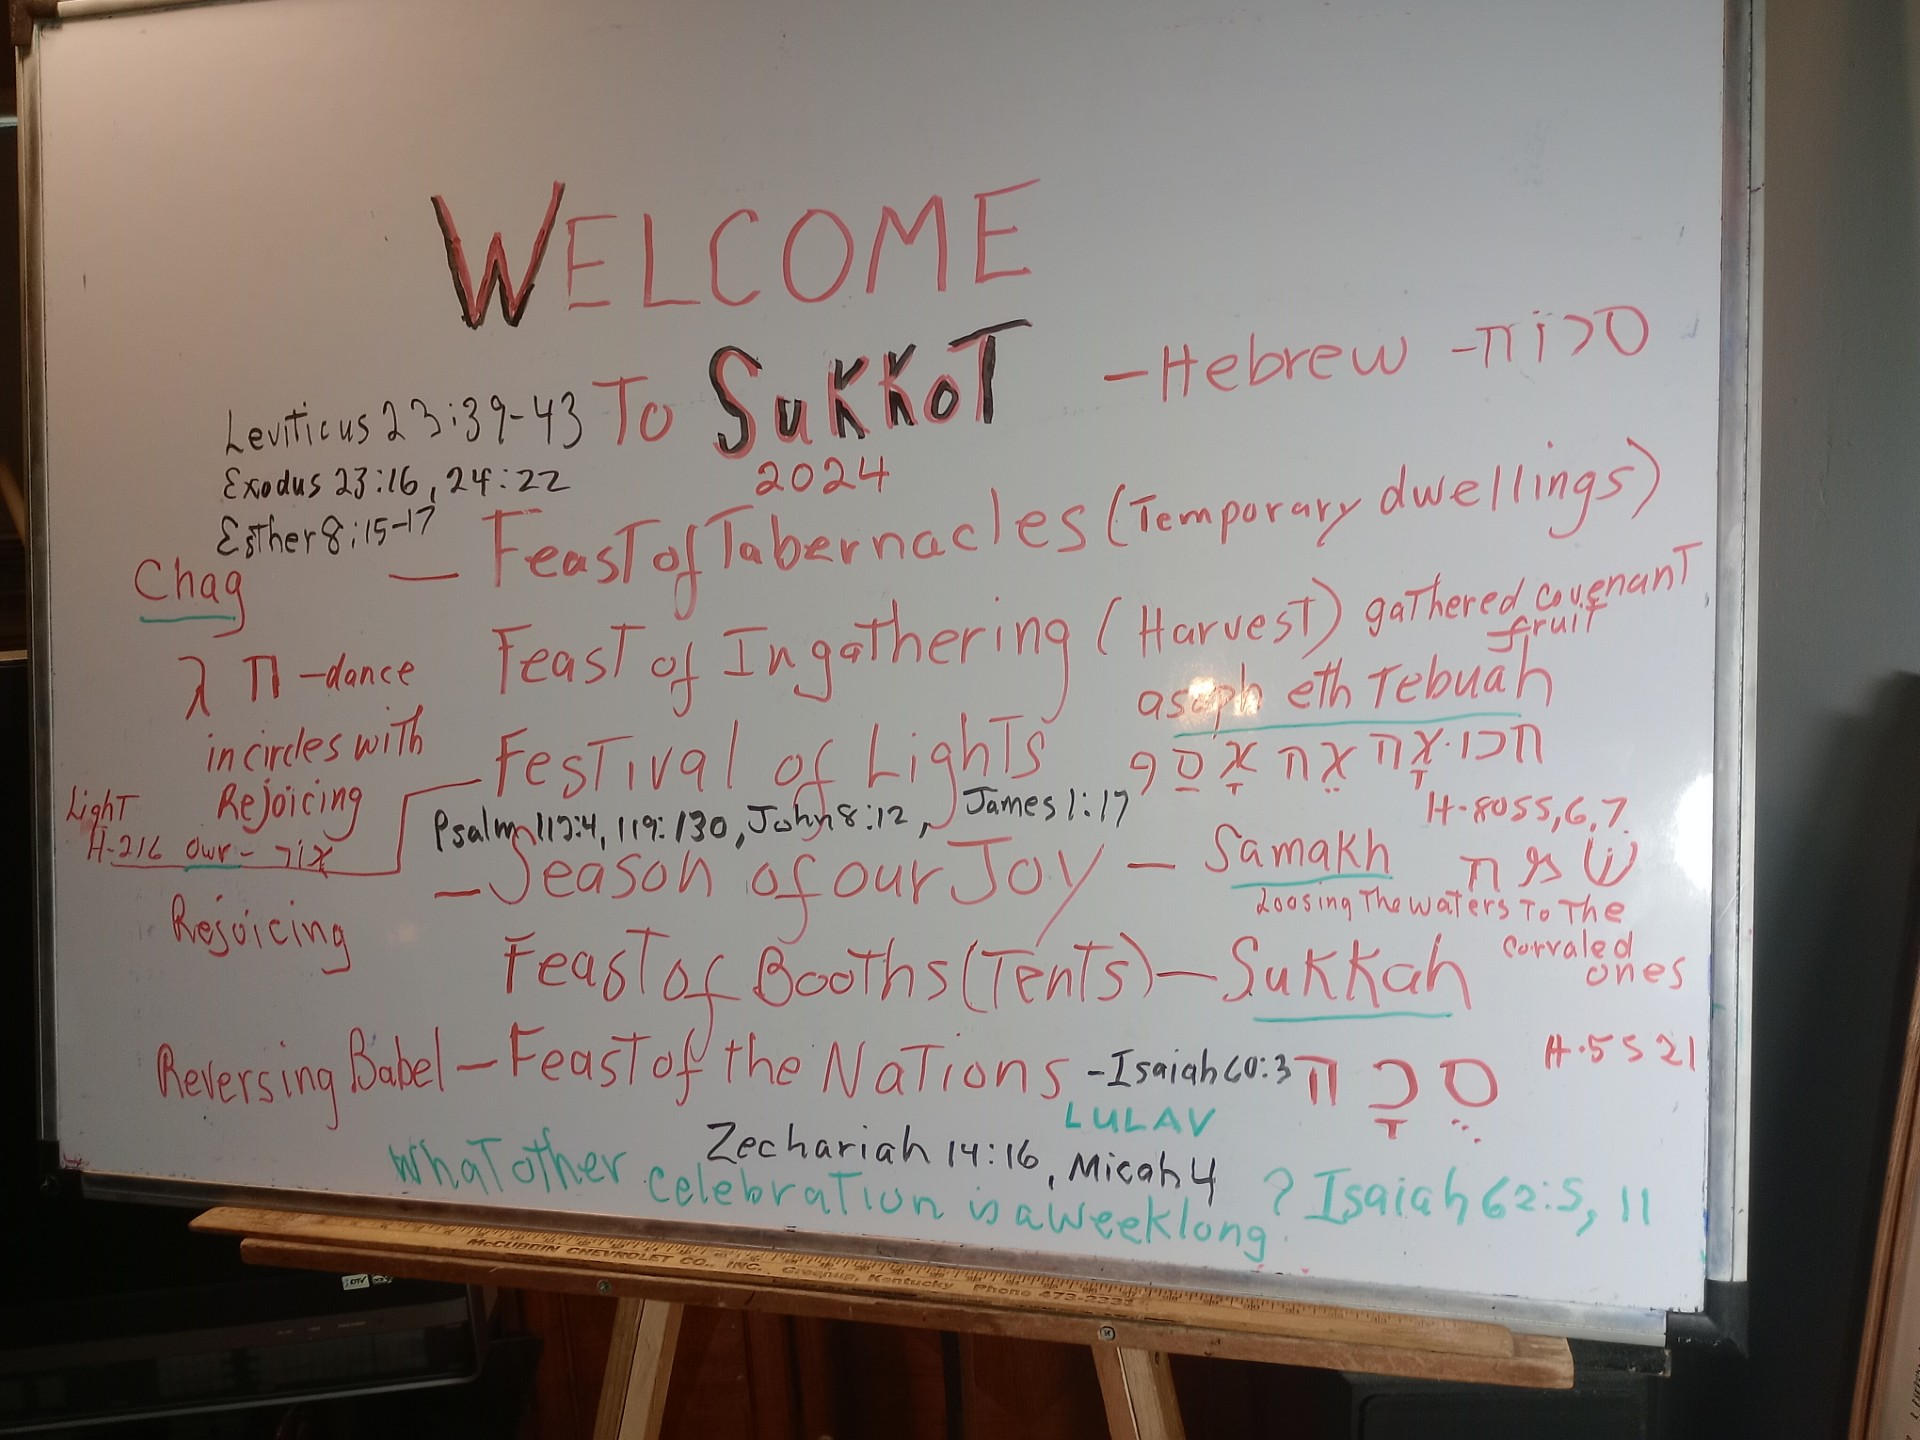 WELCOME
To SuKKoT -Hebrew - סכות
Leviticus 23:39-43
2024
Exodus 23:16, 24:22
Esther 8:15-17
— Feast of Tabernacles (Temporary dwellings)
Chag
Feast of Ingathering (Harvest) gathered covenant
fruit
חג -dance
asaph eth Tebuah
in circles with
Festival of Lights
Rejoicing
Light
H-216 owr - אור
Psalm 112:4, 119:130, John 8:12, James 1:17
H-8055,6,7.
— Season of our Joy — Samakh
Loosing The waters To The
corraled
ones
Rejoicing
Feast of Booths (Tents) — Sukkah
H-5521
Reversing Babel — Feast of the Nations -Isaiah 60:3 סֻכָּה
LULAV
Zechariah 14:16, Micah 4
What other celebration is a week long ? Isaiah 62:5, 11
McCUBBIN CHEVROLET CO., INC., Greenup, Kentucky Phone 473-2331